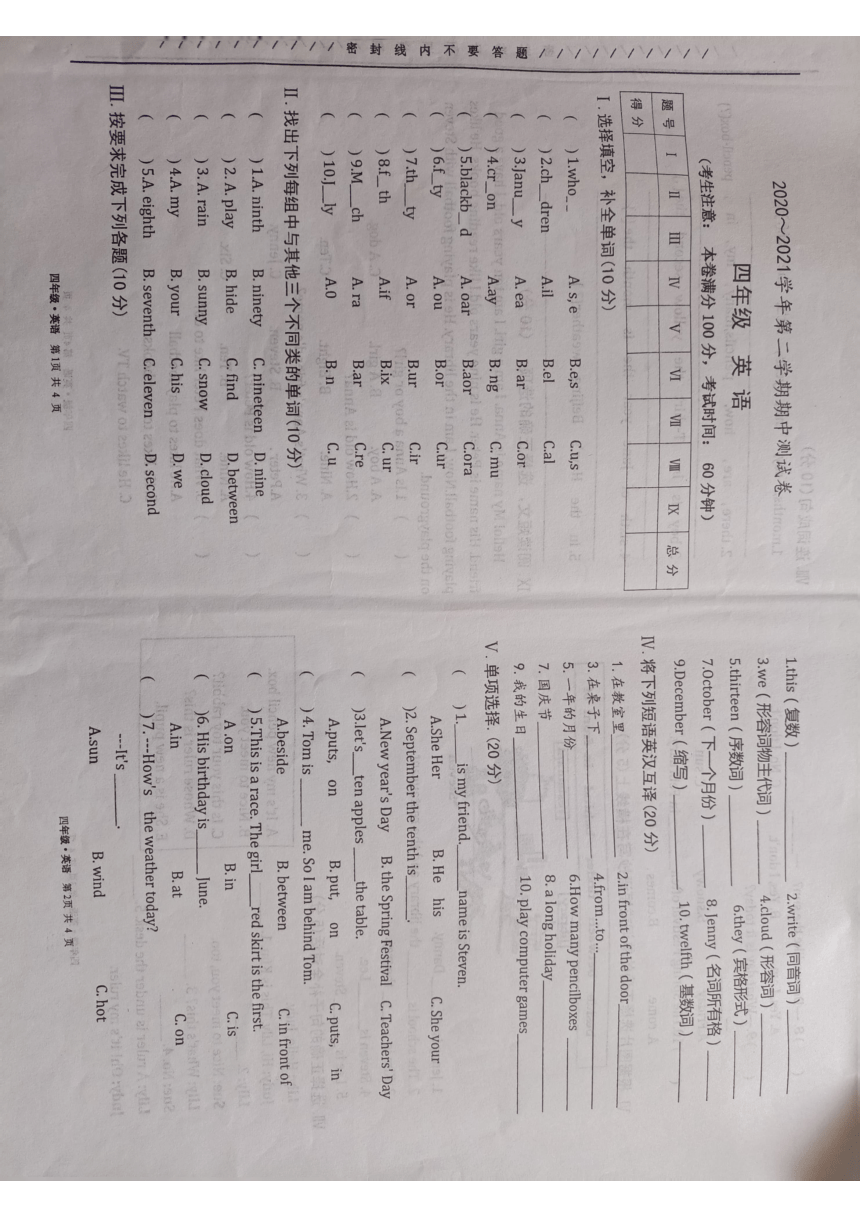 密 封 线 内 不 要 答 题
2020～2021学年第二学期期中测试卷
四年级 英 语
(考生注意： 本卷满分100分，考试时间： 60分钟)
题 号 Ⅰ Ⅱ Ⅲ Ⅳ Ⅴ Ⅵ Ⅶ Ⅷ Ⅸ 总 分
得 分
Ⅰ. 选择填空，补全单词(10分)
( ) 1.who_ _ A. s, e B.e,s C.u,s
( ) 2.ch_ dren A.il B.el C.al
( ) 3.Janu__ y A. ea B. ar C.or
( ) 4.cr_ on A.ay B. ng C. mu
( ) 5.blackb_ d A. oar B.aor C.ora
( ) 6.f_ ty A. ou B.or C.ur
( ) 7.th__ ty A. or B.ur C.ir
( ) 8.f_ th A.if B.ix C. ur
( ) 9.M__ ch A. ra B.ar C.re
( ) 10.J__ ly A.0 B. n C.u
Ⅱ. 找出下列每组中与其他三个不同类的单词(10分)
( ) 1.A. ninth B. ninety C. nineteen D. nine
( ) 2. A. play B. hide C. find D. between
( ) 3. A. rain B. sunny C. snow D. cloud
( ) 4.A. my B. your C. his D. we
( ) 5.A. eighth B. seventh C. eleven D. second
Ⅲ. 按要求完成下列各题(10分)
四年级·英语 第1页 共 4 页
1.this ( 复数 ) ________ 2.write ( 同音词 ) ________
3.we ( 形容词物主代词 ) ________ 4.cloud ( 形容词 ) ________
5.thirteen ( 序数词 ) ________ 6.they ( 宾格形式 ) ________
7.October ( 下一个月份 ) ________ 8.Jenny ( 名词所有格 ) ________
9.December ( 缩写 ) ________ 10. twelfth ( 基数词 ) ________
Ⅳ. 将下列短语英汉互译(20分)
1. 在教室里 ________ 2.in front of the door________
3. 在桌子下 ________ 4.from...to...________
5. 一年的月份 ________ 6.How many pencilboxes ________
7. 国庆节 ________ 8. a long holiday________
9. 我的生日 ________ 10. play computer games________
Ⅴ. 单项选择. (20分)
( ) 1.____ is my friend.____name is Steven.
A.She Her B. He his C. She your
( )2. September the tenth is______.
A.New year's Day B. the Spring Festival C. Teachers' Day
( )3.let's___ten apples _____the table.
A.puts, on B. put, on C. puts, in
( )4. Tom is _____ me. So I am behind Tom.
A.beside B. between C. in front of
( ) 5.This is a race. The girl____red skirt is the first.
A .on B. in C. is
( )6. His birthday is _____ June.
A.in B. at C. on
( )7. ---How's the weather today?
---It's ______.
A.sun B. wind C. hot
四年级·英语 第2页 共 4 页